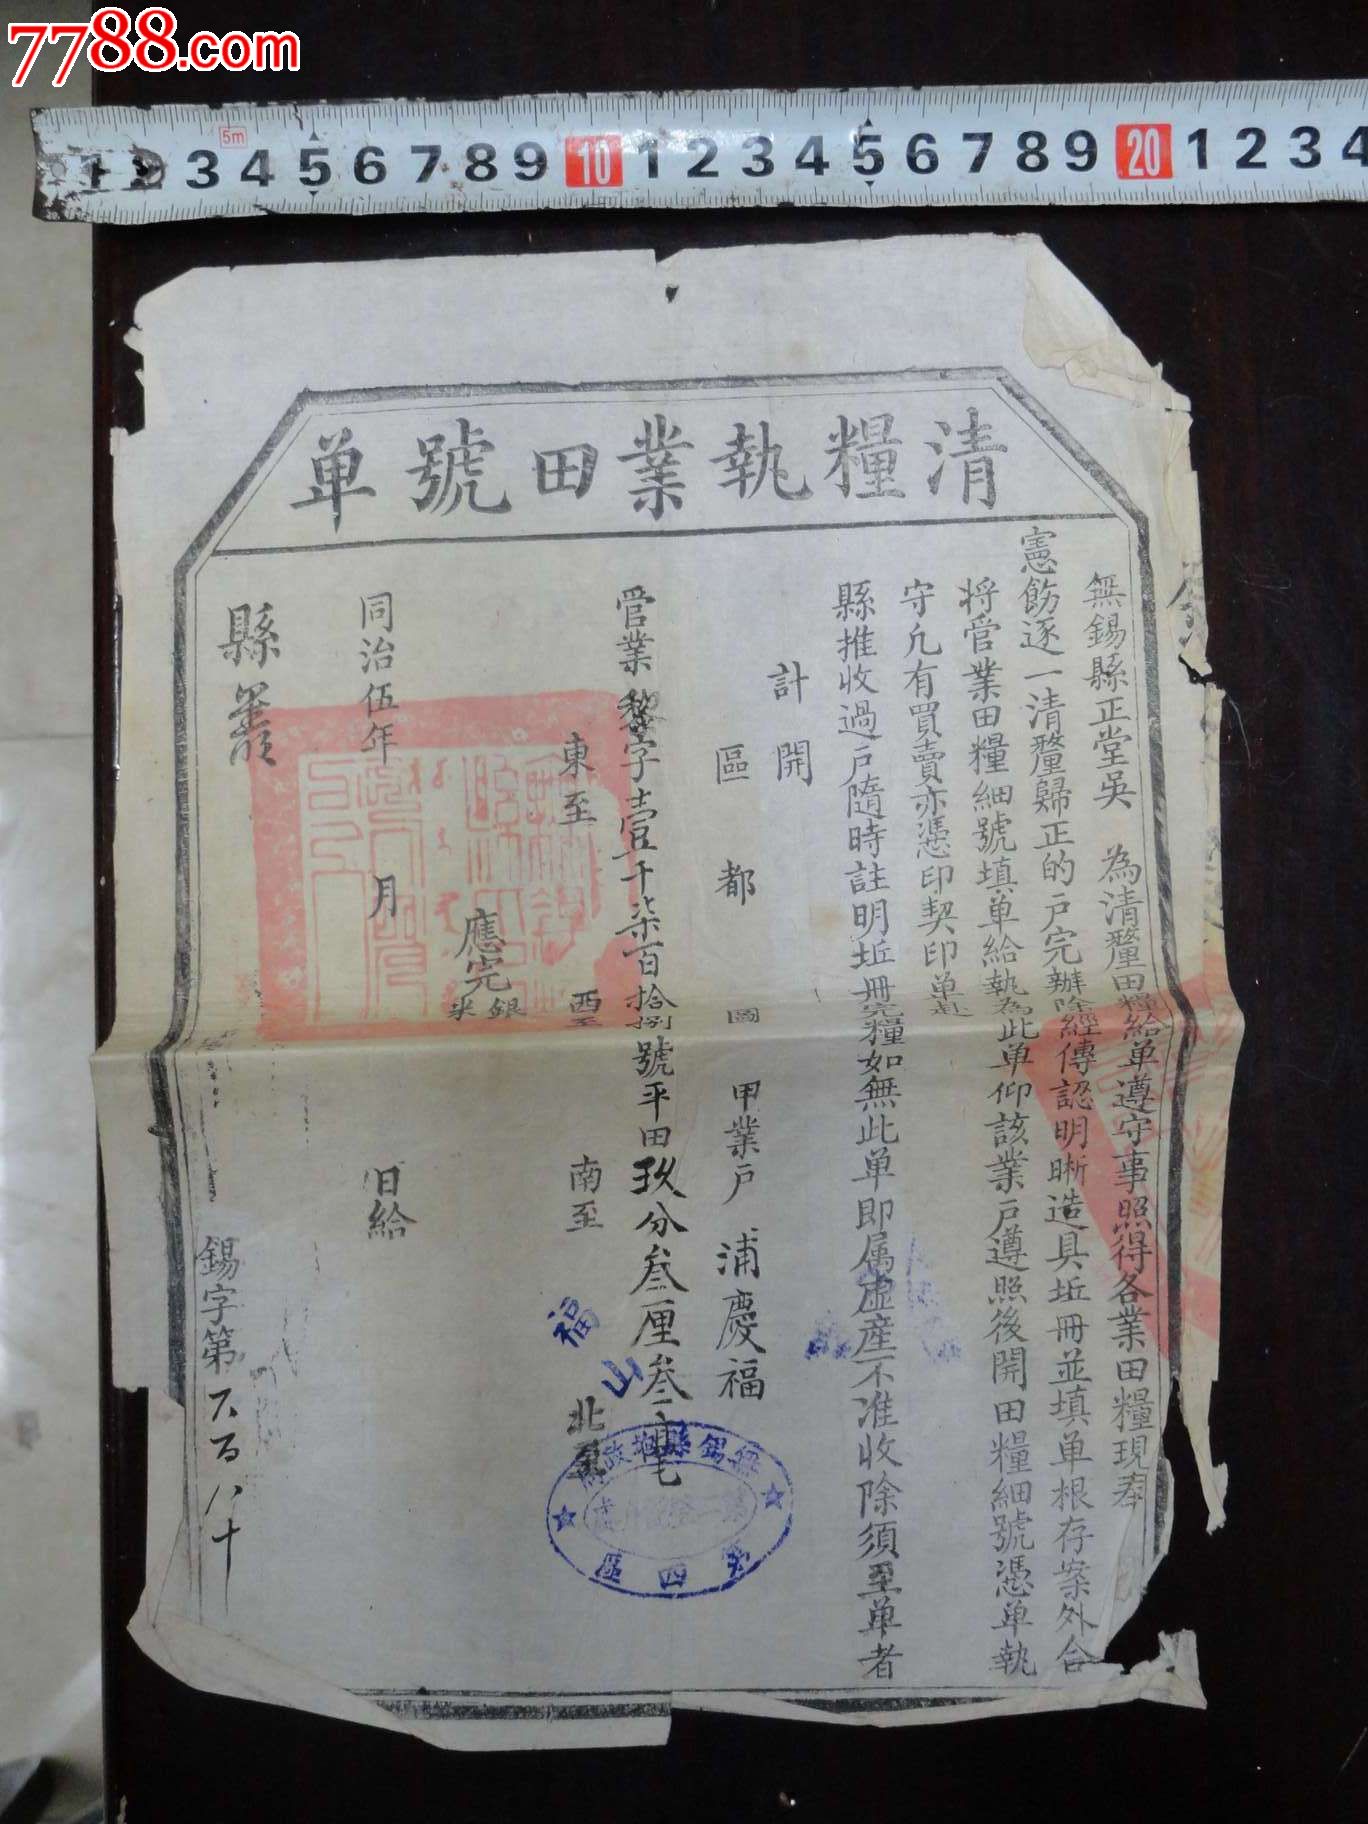 7788.com
5m
3 4 5 6 7 8 9 10 1 2 3 4 5 6 7 8 9 20 1 2 3 4
清糧執業田號單
無錫縣正堂吳　為清釐田糧給單遵守事照得各業田糧現奉
憲飭逐一清釐歸正的戶完辦除經傳認明晰造具坵冊並填单根存案外合
将管業田糧細號填单給執為此单仰該業戶遵照後開田糧細號憑单執
守凡有買賣亦憑印契印单赴
縣推收過戶隨時註明坵冊完糧如無此单即属虛産不准收除須至单者
計開
區　都　圖　甲業戶　浦慶福
管業　字壹千柒百拾捌號平田玖分叁厘叁毫
東至　西至　南至　北至
應完
銀
米
同治伍年　月　日給
縣
錫字第　百八十
福山
無錫縣
第四區